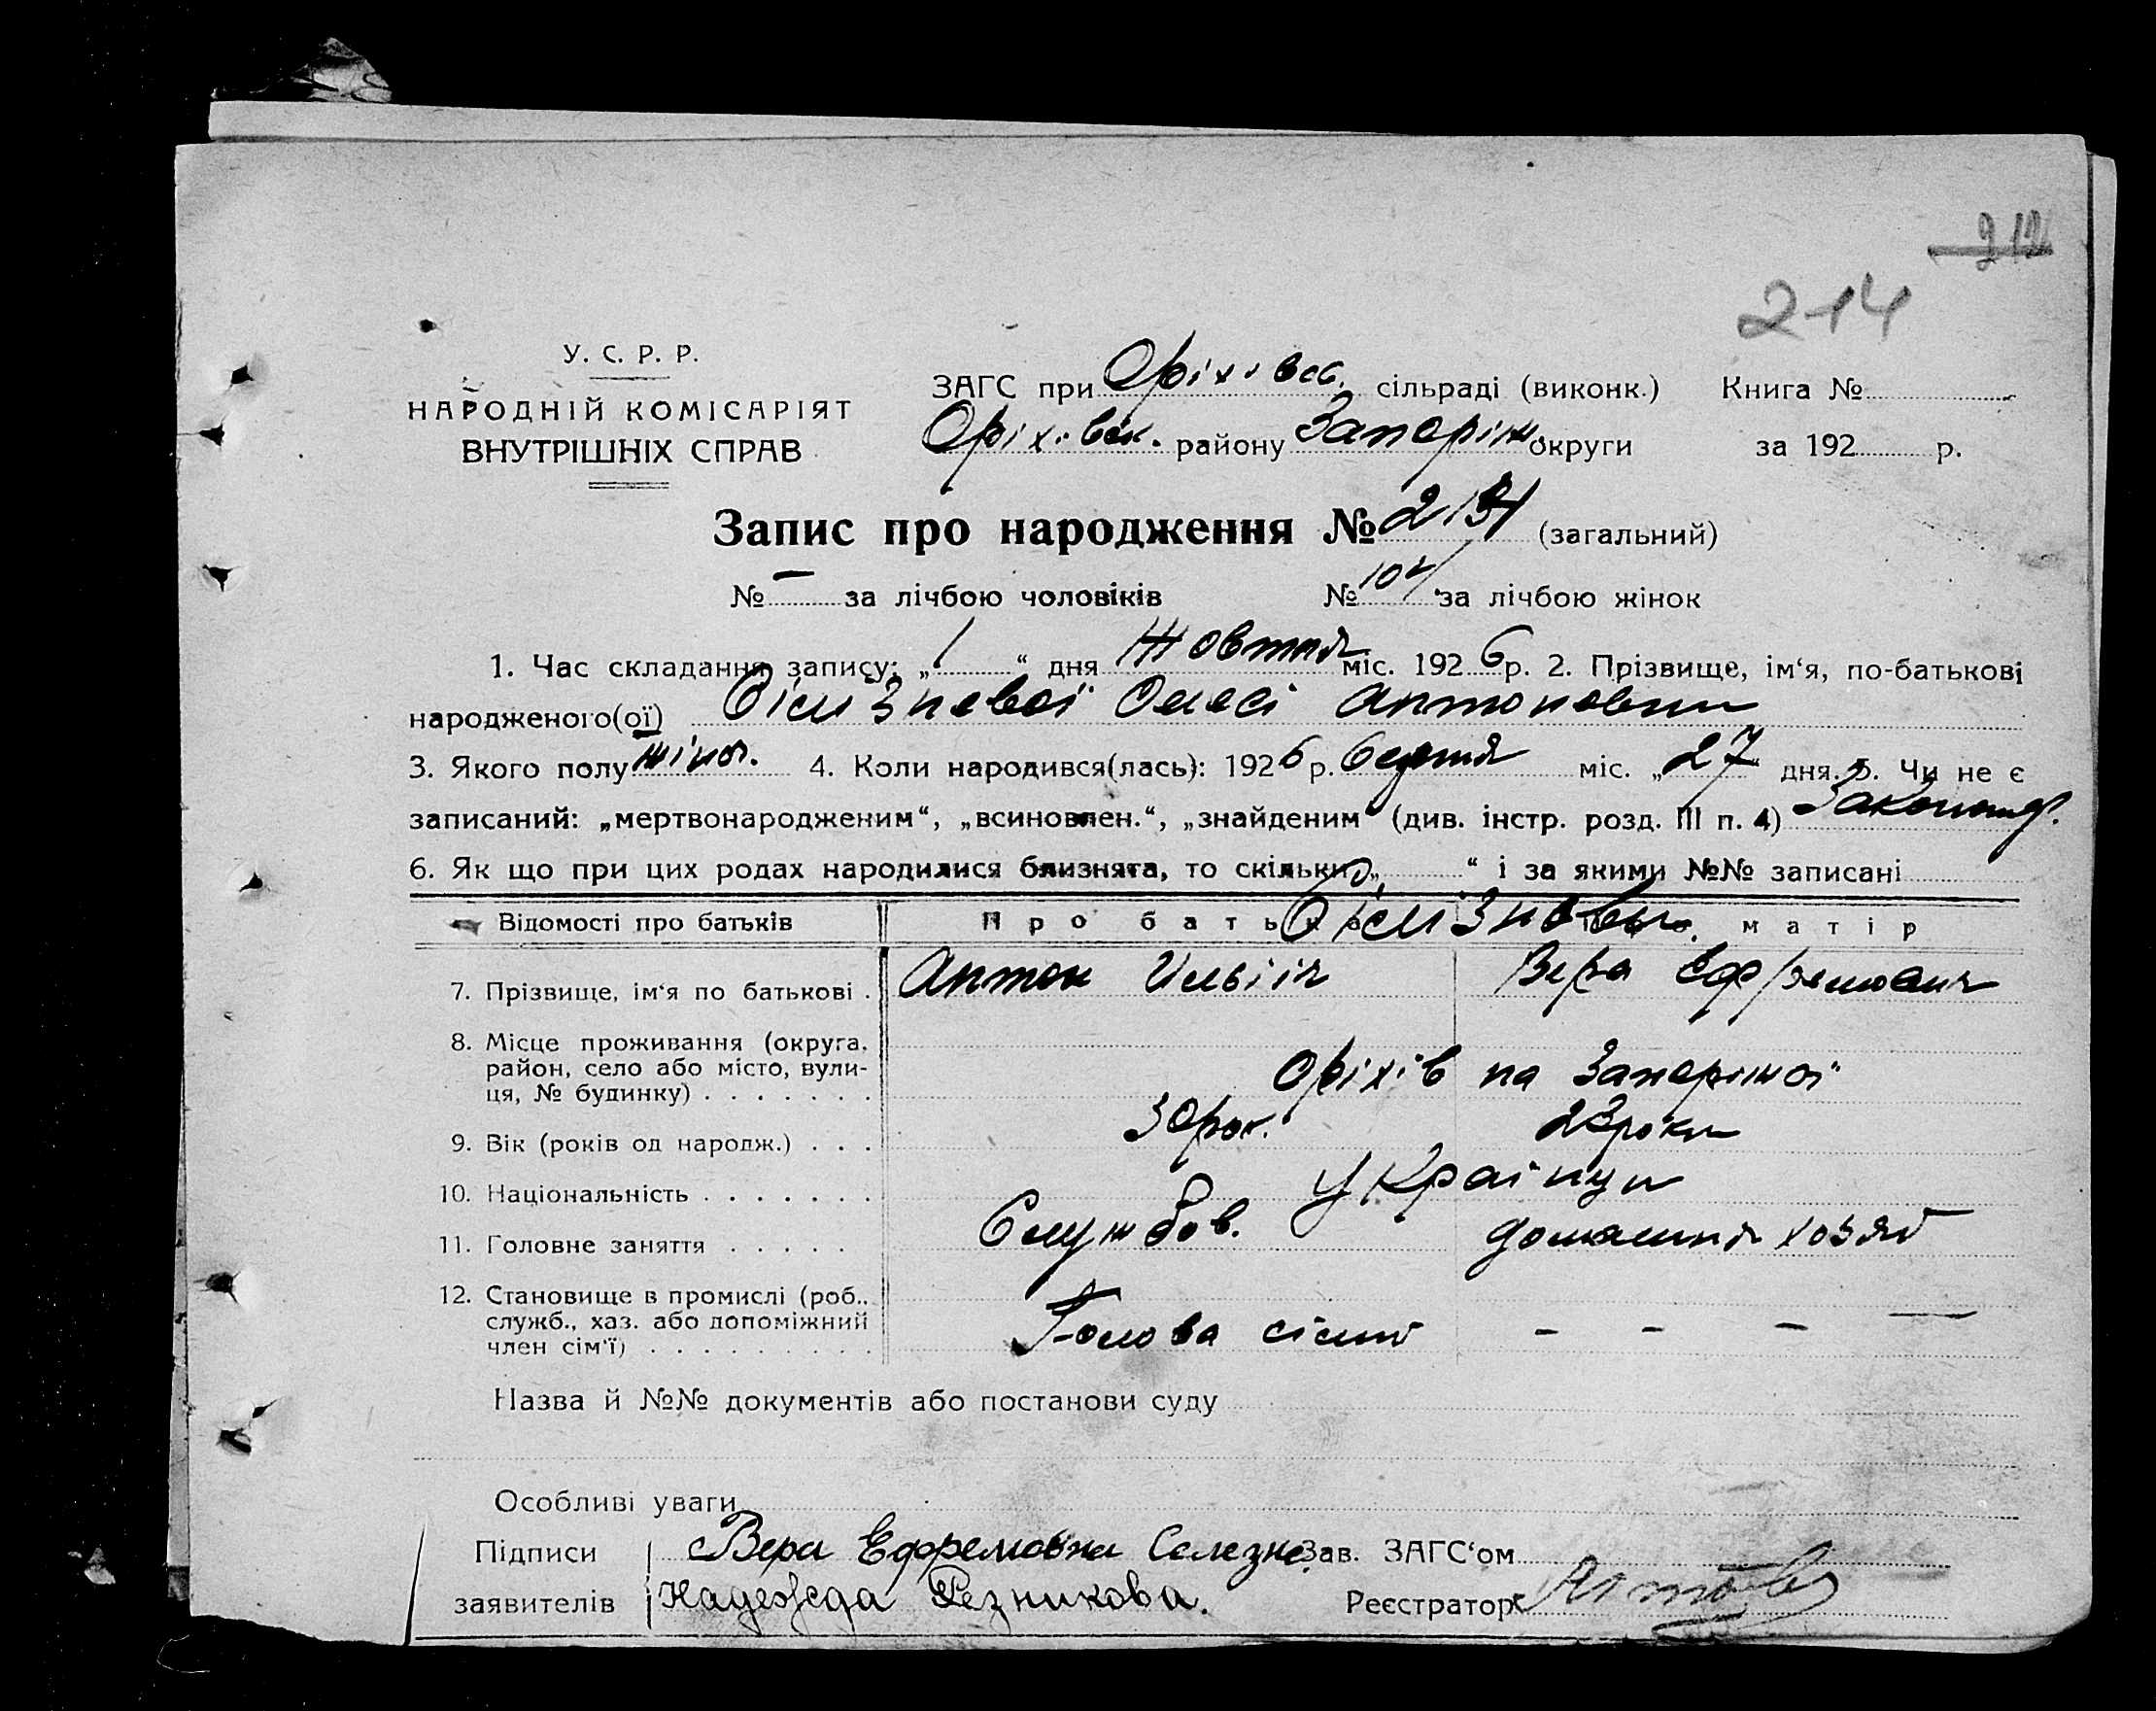 214
У. С. Р. Р.
НАРОДНІЙ КОМІСАРІЯТ
ВНУТРІШНІХ СПРАВ
ЗАГС при Оріхівск. сільраді (виконк.) Книга №
Оріхівск. району Запоріж округи за 192 р.
Запис про народження № (загальний)
№ — за лічбою чоловіків № за лічбою жінок
1. Час складання запису: „1“ дня Жовтня міс. 1926 р. 2. Прізвище, ім‘я, по-батькові
народженого(ої) Антоновни
3. Якого полу жіноч. 4. Коли народився(лась): 1926 р. міс. „27“ дня. 5. Чи не є
записаний: „мертвонародженим“, „всиновлен.“, „знайденим“ (див. інстр. розд. III п. 4)
6. Як що при цих родах народилися близнята, то скільки „ “ і за якими №№ записані
Відомості про батьків Про батька матір
7. Прізвище, ім‘я по батькові . Антон Ильіч Вера Ефремовна
8. Місце проживання (округа,
район, село або місто, вули-
ця, № будинку) . . . . . . . Оріхів на Запоріжої
9. Вік (років од народж.) . . . 30 рок. 23 роки
10. Національність . . . . . . . Українци
11. Головне заняття . . . . . Службов. домашня хозяй
12. Становище в промислі (роб.,
служб., хаз. або допоміжний
член сім‘ї) . . . . . . . . . Голова сімї - - - —
Назва й №№ документів або постанови суду
Особливі уваги
Підписи Вера Ефремовна Селезне Зав. ЗАГС‘ом
заявителів Надежда Резникова. Реєстратор